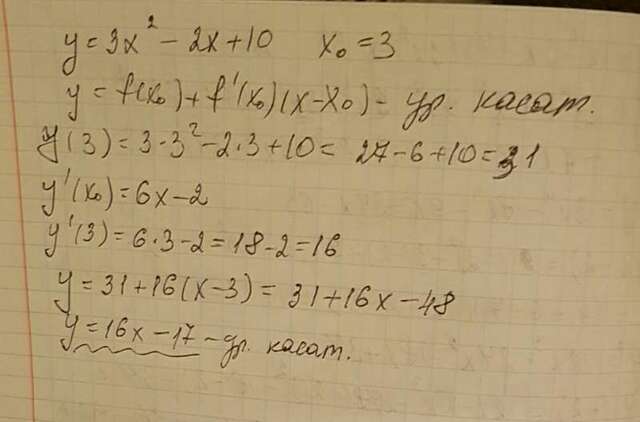 y = 3x² - 2x + 10 x₀ = 3
y = f(x₀) + f'(x₀)(x - x₀) - ур. касат.
y(3) = 3·3² - 2·3 + 10 = 27 - 6 + 10 = 31
y'(x₀) = 6x - 2
y'(3) = 6·3 - 2 = 18 - 2 = 16
y = 31 + 16(x - 3) = 31 + 16x - 48
y = 16x - 17 - ур. касат.